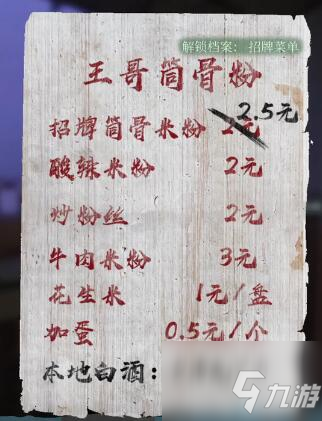 解锁档案： 招牌菜单
王哥筒骨粉
2.5元
招牌筒骨米粉 2元
酸辣米粉 2元
炒粉丝 2元
牛肉米粉 3元
花生米 1元/盘
加蛋 0.5元/个
本地白酒：
九游